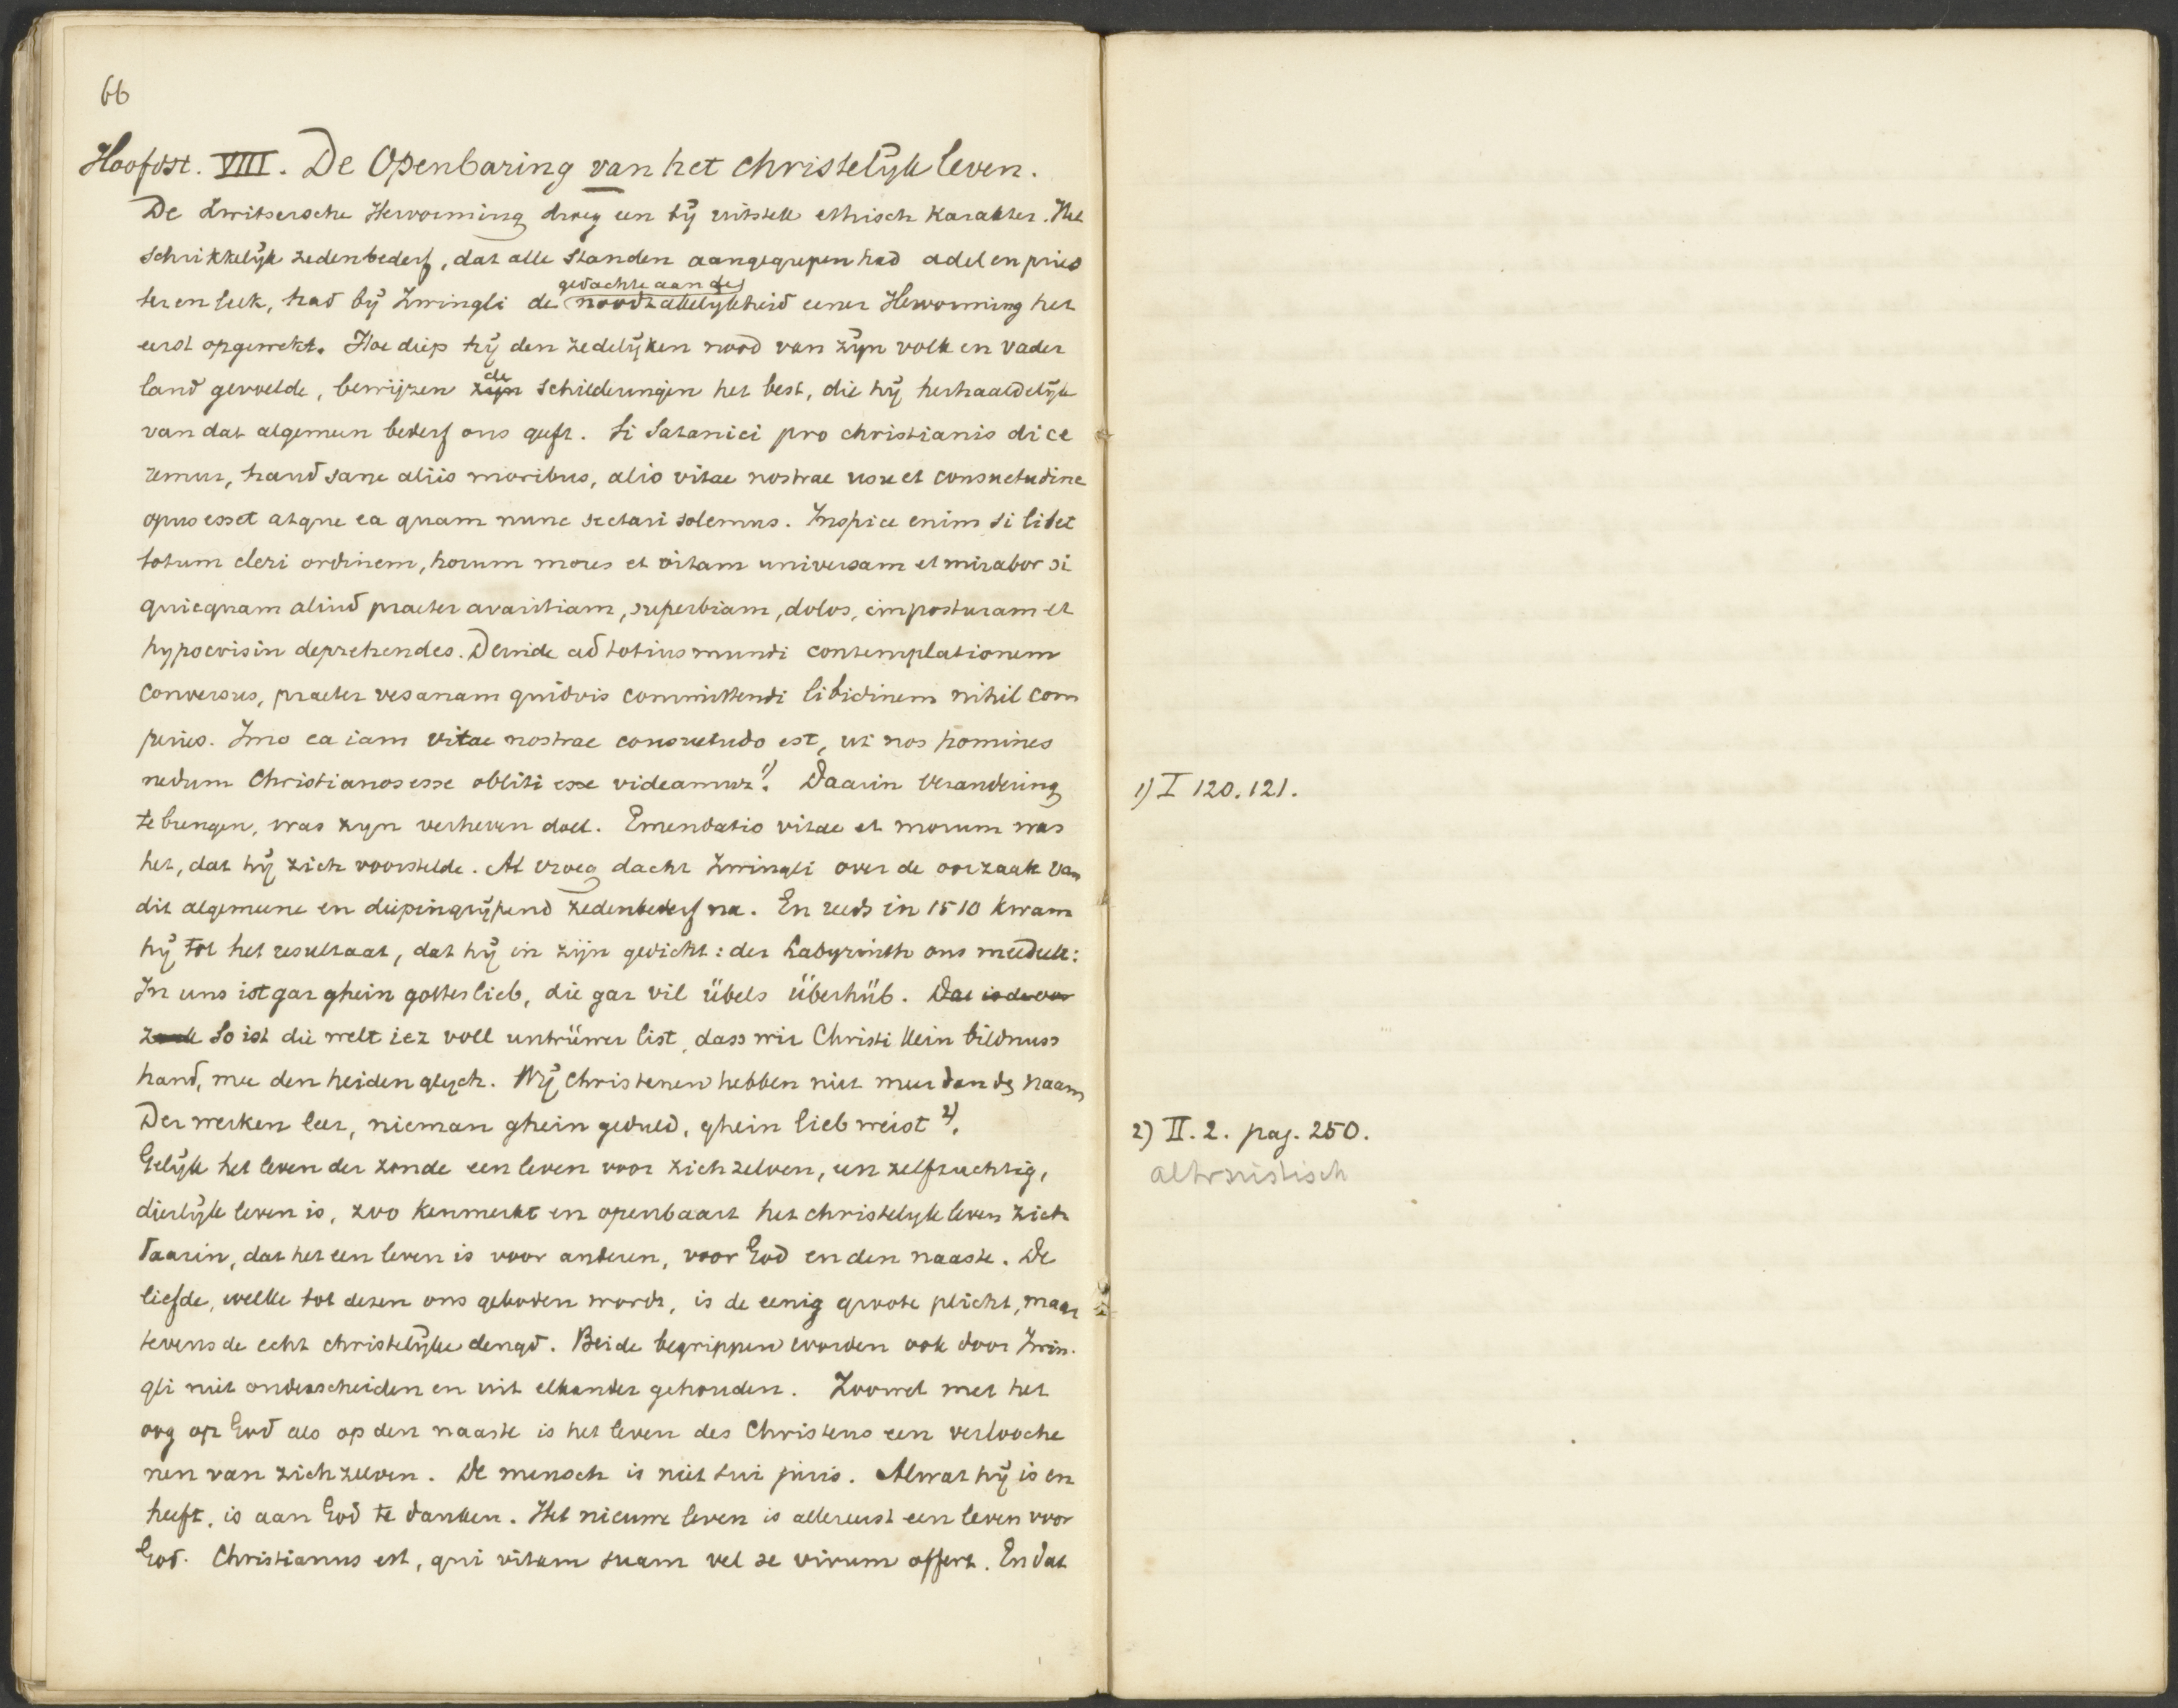 66
Hoofdst. VIII. De Openbaring van het christelijk leven.
De Zwitsersche Hervorming droeg een bij uitstek ethisch karakter. Het
schrikkelijk zedenbederf, dat alle standen aangegrepen had adel en pries
ter en leek, had bij Zwingli de gedachte aan de noodzakelijkheid eener Hervorming het
eerst opgewekt. Hoe diep hij den zedelijken nood van zijn volk en vader
land gevoelde, bewijzen zijn de schilderingen het best, die hij herhaaldelijk
van dat algemeen bederf ons geeft. Si Satanici pro christianis dice
remur, haud sane aliis moribus, alio vitae nostrae usu et consuetudine
opus esset atque ea quam nunc sectari solemus. Inspice enim si libet
totum cleri ordinem, horum mores et vitam universam et mirabor si
quicquam aliud praeter avaritiam, superbiam, dolos, imposturam et
hypocrisin deprehendes. Deinde ad totius mundi contemplationem
conversus, praeter vesanam quidvis committendi libidinem nihil com
peries. Imo ea iam vitae nostrae consuetudo est, ut nos homines
nedum Christianos esse obliti esse videamur 1). Daarin verandering
te brengen, was zijn verheven doel. Emendatio vitae et morum was
het, dat hij zich voorstelde. Al vroeg dacht Zwingli over de oorzaak van
dit algemeene en diepingrijpend zedenbederf na. En reeds in 1510 kwam
hij tot het resultaat, dat hij in zijn gedicht: der Labyrinth ons meedeelt:
In uns ist gar ghein gotteslieb, die gar vil übels überhüb. Dat is de oor
zaak So ist die welt iez voll untrüwer list, dass wir Christi klein bildnuss
hand, mee den heiden glych. Wij Christenen hebben niet meer dan de naam
Der werken leer, nieman ghein geduld, ghein lieb weist 2).
Gelijk het leven der zonde een leven voor zich zelven, een zelfzuchtig,
dierlijk leven is, zoo kenmerkt en openbaart het christelijk leven zich
daarin, dat het een leven is voor anderen, voor God en den naaste. De
liefde, welke tot dezen ons geboden wordt, is de eenig groote plicht, maar
tevens de echt christelijke deugd. Beide begrippen worden ook door Zwin-
gli niet onderscheiden en uit elkander gehouden. Zoowel met het
oog op God als op den naaste is het leven des Christens een verlooche
nen van zich zelven. De mensch is niet sui juris. Alwat hij is en
heeft, is aan God te danken. Het nieuwe leven is allereerst een leven voor
God. Christianus est, qui vitam suam vel se virum offert. En dat
1) I 120. 121.
2) II. 2. pag. 250.
altruistisch